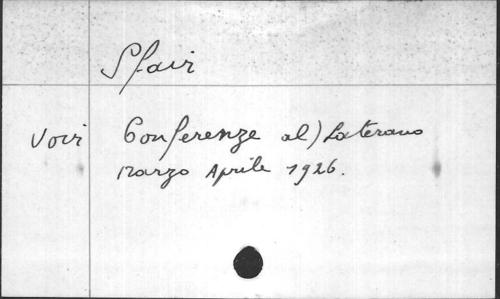 Sfair
Vovi Conferenze al) Laterano
Marzo Aprile 1926.